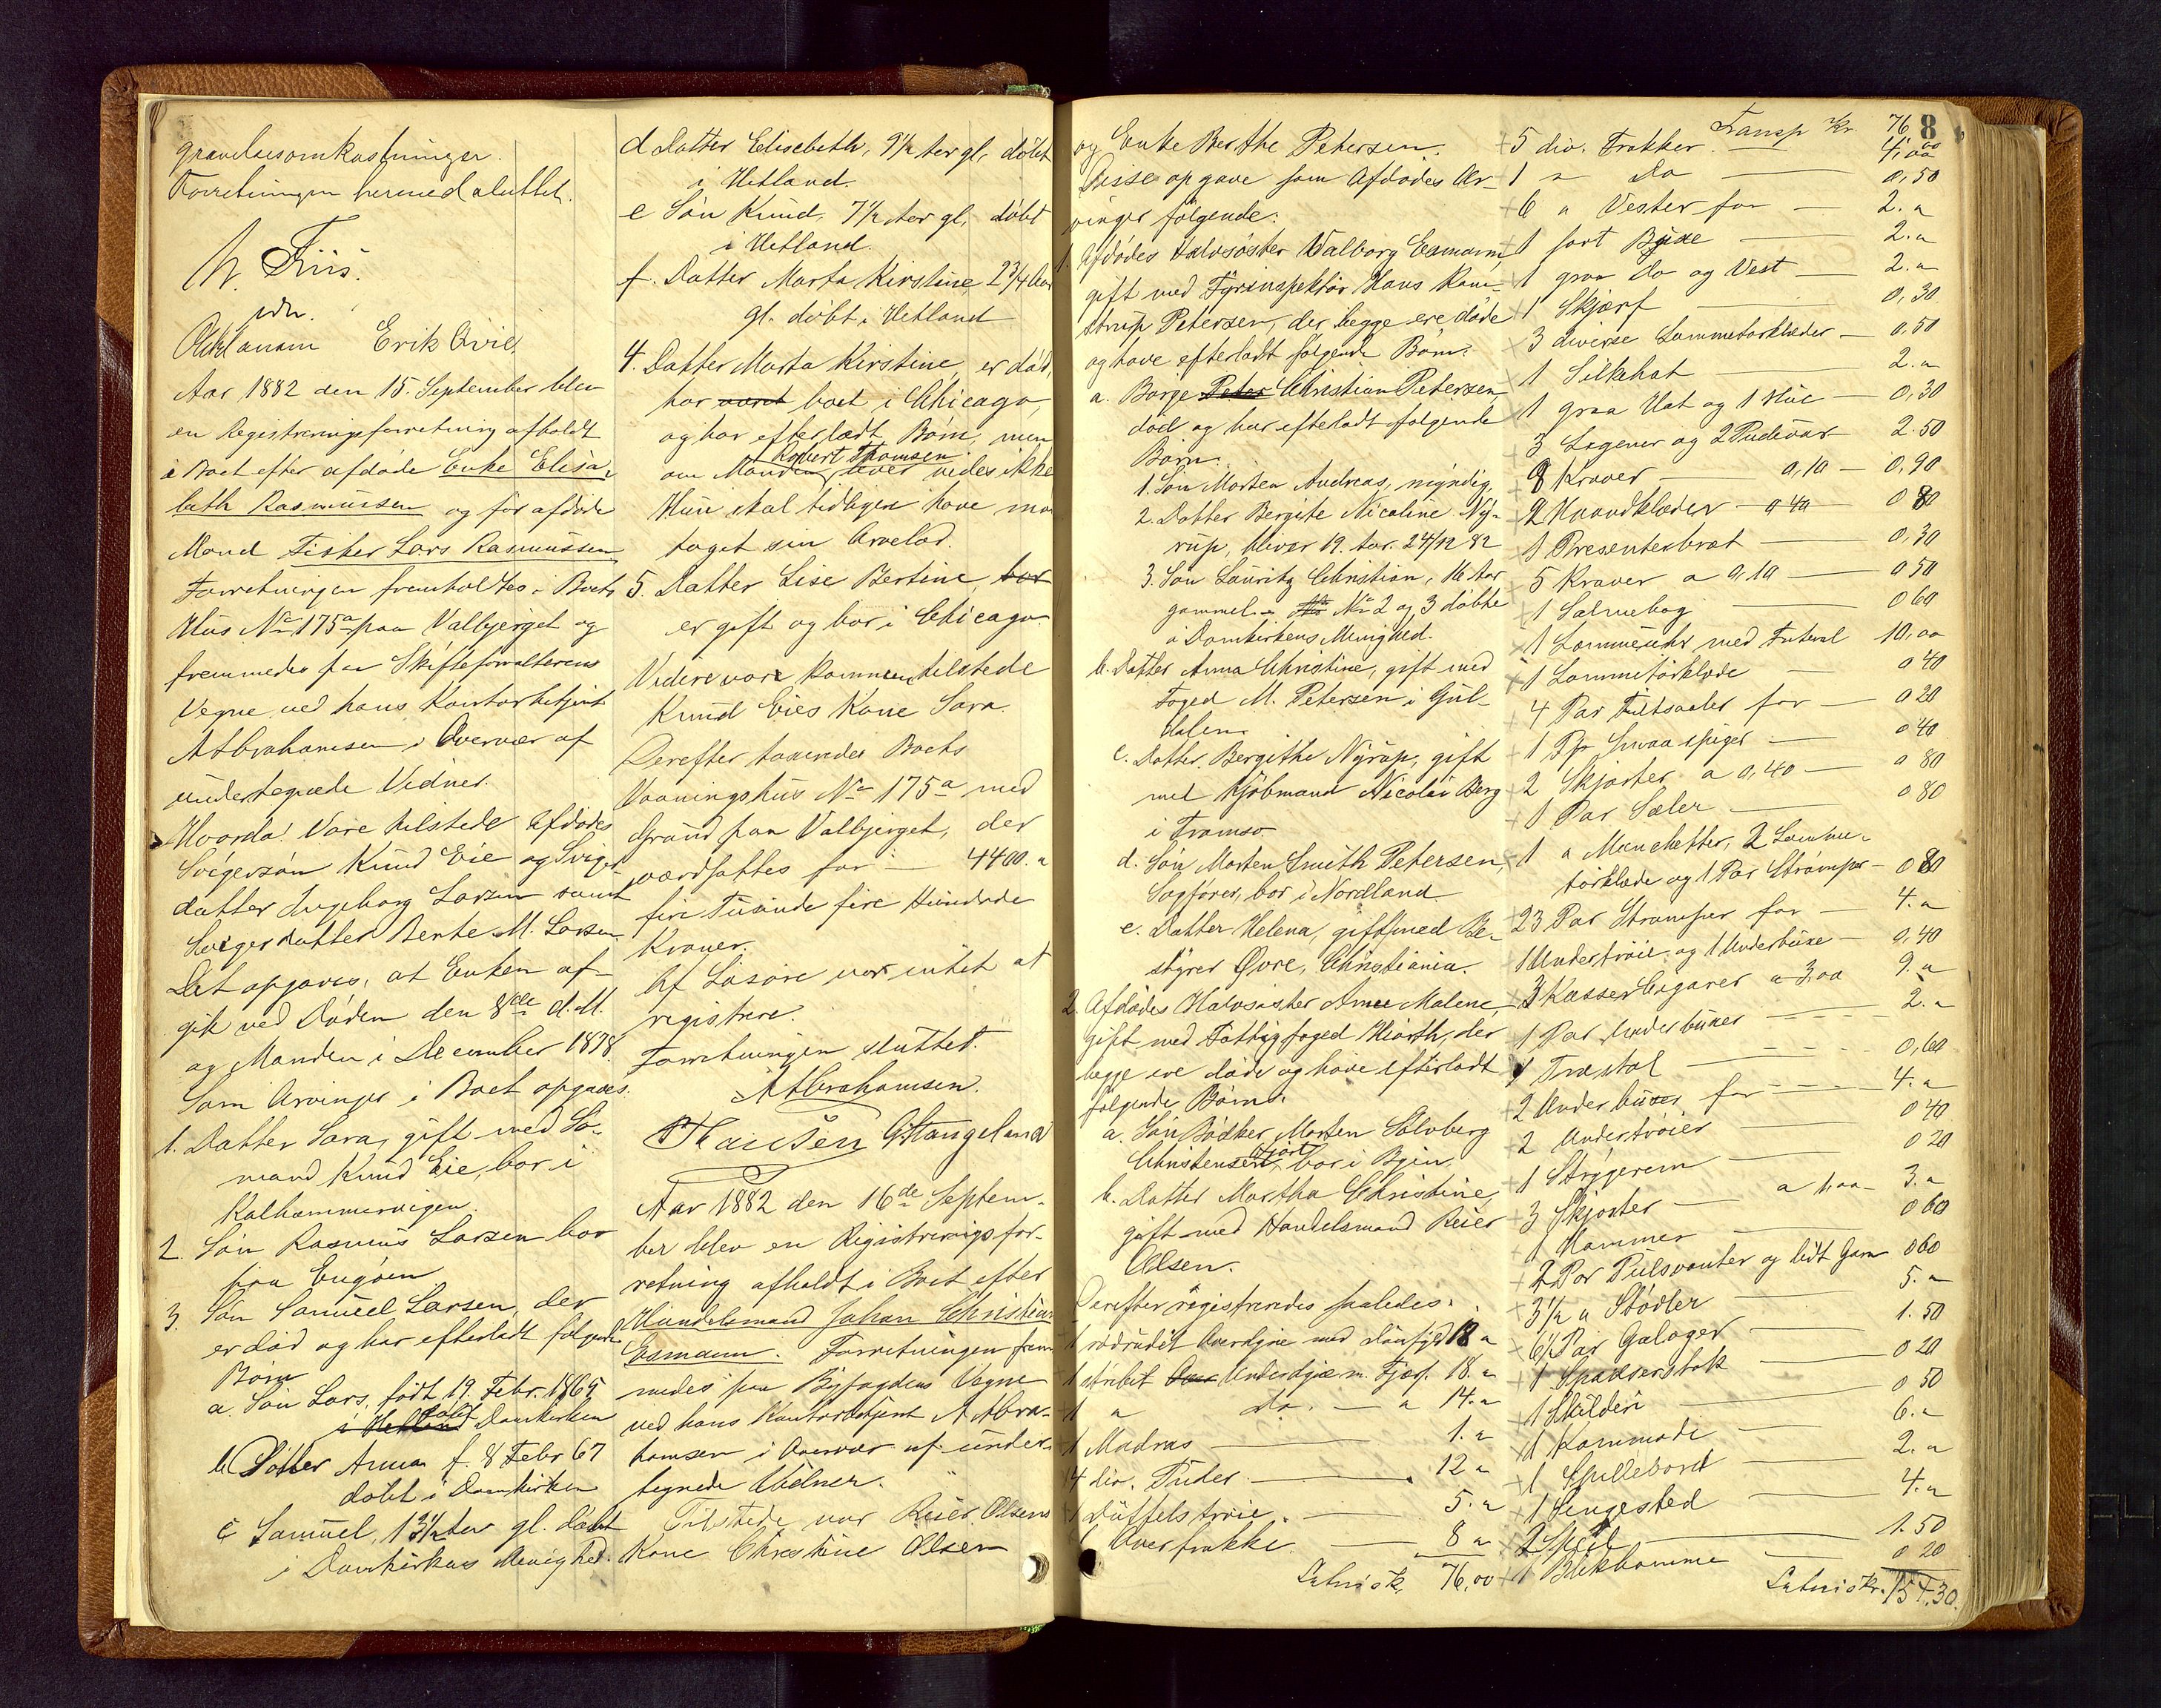 gravelsesomkostninger.
Forretningen hermed sluttet.
N. Friis.
edv.
O Kd anam Erik Qvie
Aar 1882 den 15. September blev
en Registreringsforretning afholdt
i Boet efter afdøde Enke Elisa-
beth Rasmussen og før afdøde
Mand Fisker Lars Rasmussen
Forretningen fremholdtes i Boets
Hus No 175a paa Valbjerget og
fremmedes paa Skifteforvalterens
Vegne ved hans Kontorbetjent
A Abrahamsen i Overvær af
undertegnede Vidner.
Hvorda! Vare tilstede Afdødes
Svigersøn Knud Eie og Sviger
datter Ingeborg Larsen samt
Svigerdatter Bente M. Larsen.
Det opgaves, at Enken af-
gik ved Døden den 8de d.M.
og Manden i December 1878.
Som Arvinger i Boet opgaves.
1. Datter Sara, gift med Sø-
mand Knud Eie, bor i
Kalhammervigen.
2. Søn Rasmus Larsen bor
paa Engøen
3. Søn Samuel Larsen, der
er død og har efterladt følgende
Børn
a. Søn Lars, født 19. Febr. 1865
i Hetland døbt Domkirken
b. Datter Anna f. 8 Febr 67
døbt i Domkirken
c Samuel, 13 1/2 Aar gl. døbt
i Domkirkens Menighed.
d Datter Elisebeth, 9 1/2 Aar gl. døbt
i Hetland.
e Søn Knud, 7 1/2 Aar gl. døbt
i Hetland.
f. Datter Marta Kirstine, 2 3/4 Aar
gl. døbt i Hetland
4. Datter Marta Kirstine, er død,
har været boet i Chicago,
og har efterladt Børn, men
Robert Thomsen
om Manden lever vides ikke
Hun skal tidligere have mod
taget sin Arvelod.
5. Datter Lise Bertine, bor
er gift og bor i Chicago.
Videre vare kommen tilstede
Knud Eies Kone Sara.
Derefter taxeredes Boets
Vaaningshus No 175a med
Grund paa Valbjerget, der
værdsattes for — 4400. "
fire Tusinde fire Hundrede
Kroner.
Af Løsøre var intet at
registrere.
Forretningen sluttet.
A Abrahamsen.
P Hansen G Stangeland
Aar 1882 den 16de Septem-
ber blev en Registreringsfor-
retning afholdt i Boet efter
Handelsmand Johan Christian
Esmann. Forretningen frem
medes paa Byfogdens Vegne
ved hans Kontorbetjent A Abra-
hamsen i Overvær af under-
tegnede Vidner.
Tilstede var Reier Olsens
Kone Christine Olsen
og Enke Berthe Petersen.
Disse opgave som Afdødes Ar-
vinger følgende:
1. Afdødes Halvsøster Valborg Esmann,
gift med Fyrinspektør Hans Ram-
strup Petersen, der begge ere døde
og have efterladt følgende Børn:
a. Børge Peter Christian Petersen,
død og har efterladt følgende
Børn.
1. Søn Morten Andreas, myndig.
2. Datter Bergite Nicoline Ny-
rup, bliver 19. Aar. 24/12 82
3. Søn Lauritz Christian, 16 Aar
gammel. No 2 og 3 døbte
i Domkirkens Menighed.
b. Datter Anna Christine, gift med
Foged M. Petersen i Gul-
dalen
c. Datter Bergithe Nyrup, gift
med Kjøbmand Nicolai Berg
i Tromsø.
d. Søn Morten Smith Petersen,
Sagfører, bor i Nordland
e. Datter Helena, gift med Be-
styrer Øvre, Christiania.
2. Afdødes Halvsøster Anne Malene,
gift med Fattigfoged Hiorth, der
begge ere døde og have efterladt
følgende Børn.
a. Søn Bødker Morten Solvberg
Hjort
Christensen, bor i Byen
b. Datter Martha Christine,
gift med Handelsmand Reier
Olsen.
Derefter registreredes saaledes.
1 rødrudet Overdyne med Dunfyld 18 "
1 stribet Over Underdyne m. Fjær. 18. "
1 " do. — " 14. "
1 Madras — 1. "
4 div. Puder — 12 "
1 Duffelstrøie — 5. "
1 Overfrakke — 8 "
Latus K. 76,00
Transp Kr. 76,00
8
5 div. Frakker 4,00
1 " do — 0,50
6 " Vester for — 2. "
1 sort Buxe — 2. "
1 graa do og Vest — 2. "
1 Skjærf — 0,30
3 diverse Lommetørklæder — 0,50
1 Silkehat — 2. "
1 graa Hat og 1 Hue — 0,30
3 Lagener og 2 Pudevar 2.50
9 Kraver — 0,10 — 0,90
2 Haandklæder — 0 40 0 80
1 Presenterbræt — 0,30
5 Kraver a 0,10 — 0 50
1 Salmebog — 0 60
1 Lommeuhr med Futeral 10,00
1 Lommetørklæde — 0 40
4 Par Filtsaaler for — 0 20
1 Pp Smaaspiger — 0 40
2 Skjorter a 0,40 — 0 80
1 Par Sæler — 0 80
1 " Manchetter, 2 Lomme-
tørklæde og 1 Par Strømper — 0 80
23 Par Strømper for — 4. "
1 Undertrøie og 1 Underbuxe — 0,40
3 Kasser Cigarer a 3,00 9. "
1 Par Underbuxer — 2. "
1 Træstol — 0,60
2 Underbuxer for — 4. "
2 Undertrøier — 0 40
1 Strygerem — 0 20
3 Skjorter — a 1,00 — 3. "
1 Hammer — 0 60
2 Par Pulsvanter og lidt Garn 0 60
3 1/2 " Støvler — 5. "
6 1/2 Par Galoger — 1.50
1 Spadserstok — 0 20
1 Skilderi — 0 50
1 Kommode — 6. "
1 Spillebord — 2. "
1 Sengested — 4. "
2 Speil — 1.50
1 Blikkomme — 0 20
Latus Kr. 154,30.